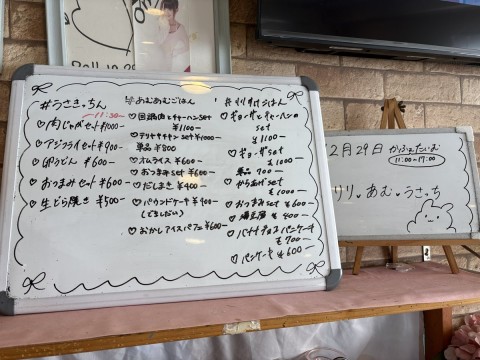 #うさきっちん
11:30~
♡肉じゃがセット¥1000
♡アジフライセット¥900
♡卵うどん ¥600
♡おつまみセット ¥600
♡生どら焼き ¥500
あむあむごはん
♡回鍋肉とチャーハンset
¥1100
♡テリヤキチキンset ¥1000
単品 ¥800
♡オムライス ¥600
♡おつまみset ¥600
♡だしまき ¥400
♡パウンドケーキ ¥400
♡おかしアイスパフェ ¥600
#リリすけごはん
♡ギョーザとチャーハンの
set
¥1100
♡ギョーザset
¥1000
単品 700
♡からあげset
¥1000
♡おつまみset ¥600
♡麻婆豆腐 ¥400
♡バナナチョコパンケーキ
¥700
♡パンケーキ ¥600
12月29日 かふぇたいむ
11:00~17:00
リリ♡あむ♡うさっち